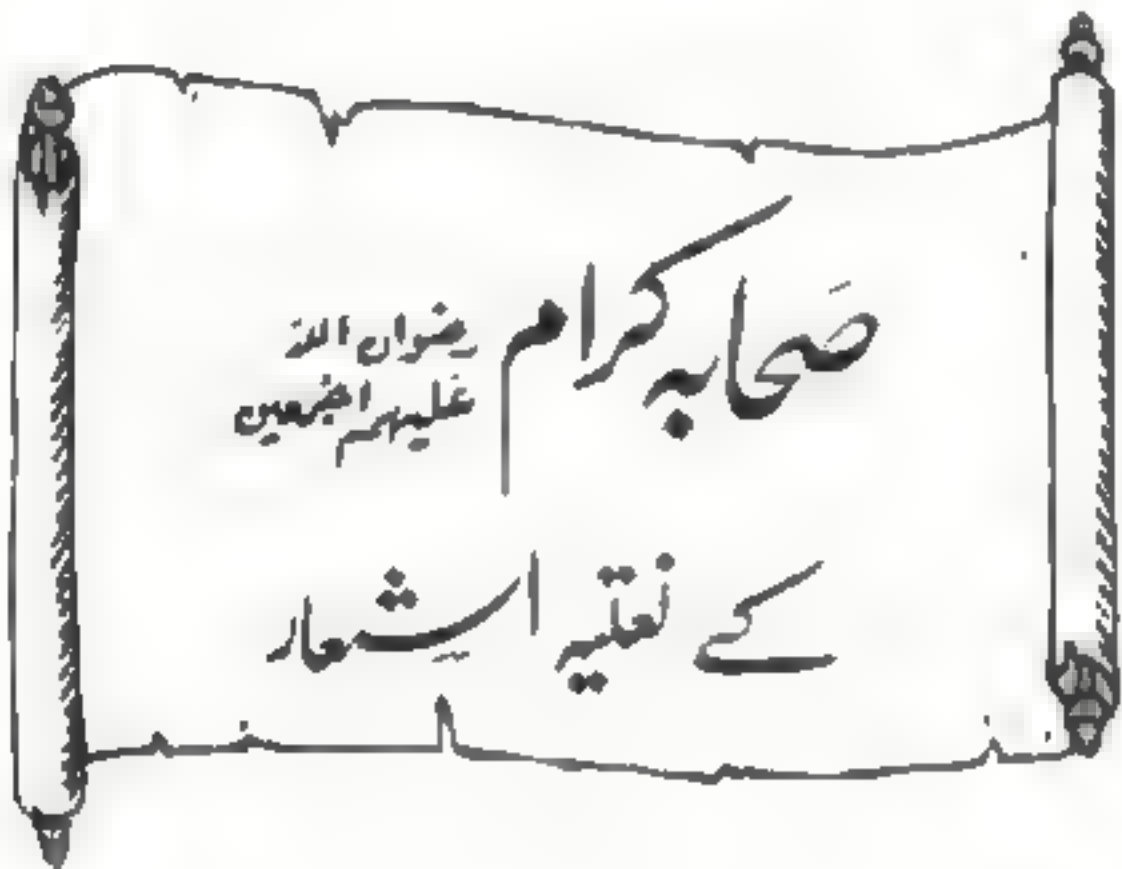 صحابہ کرام رضوان اللہ علیہم اجمعین
کے نعتیہ اشعار